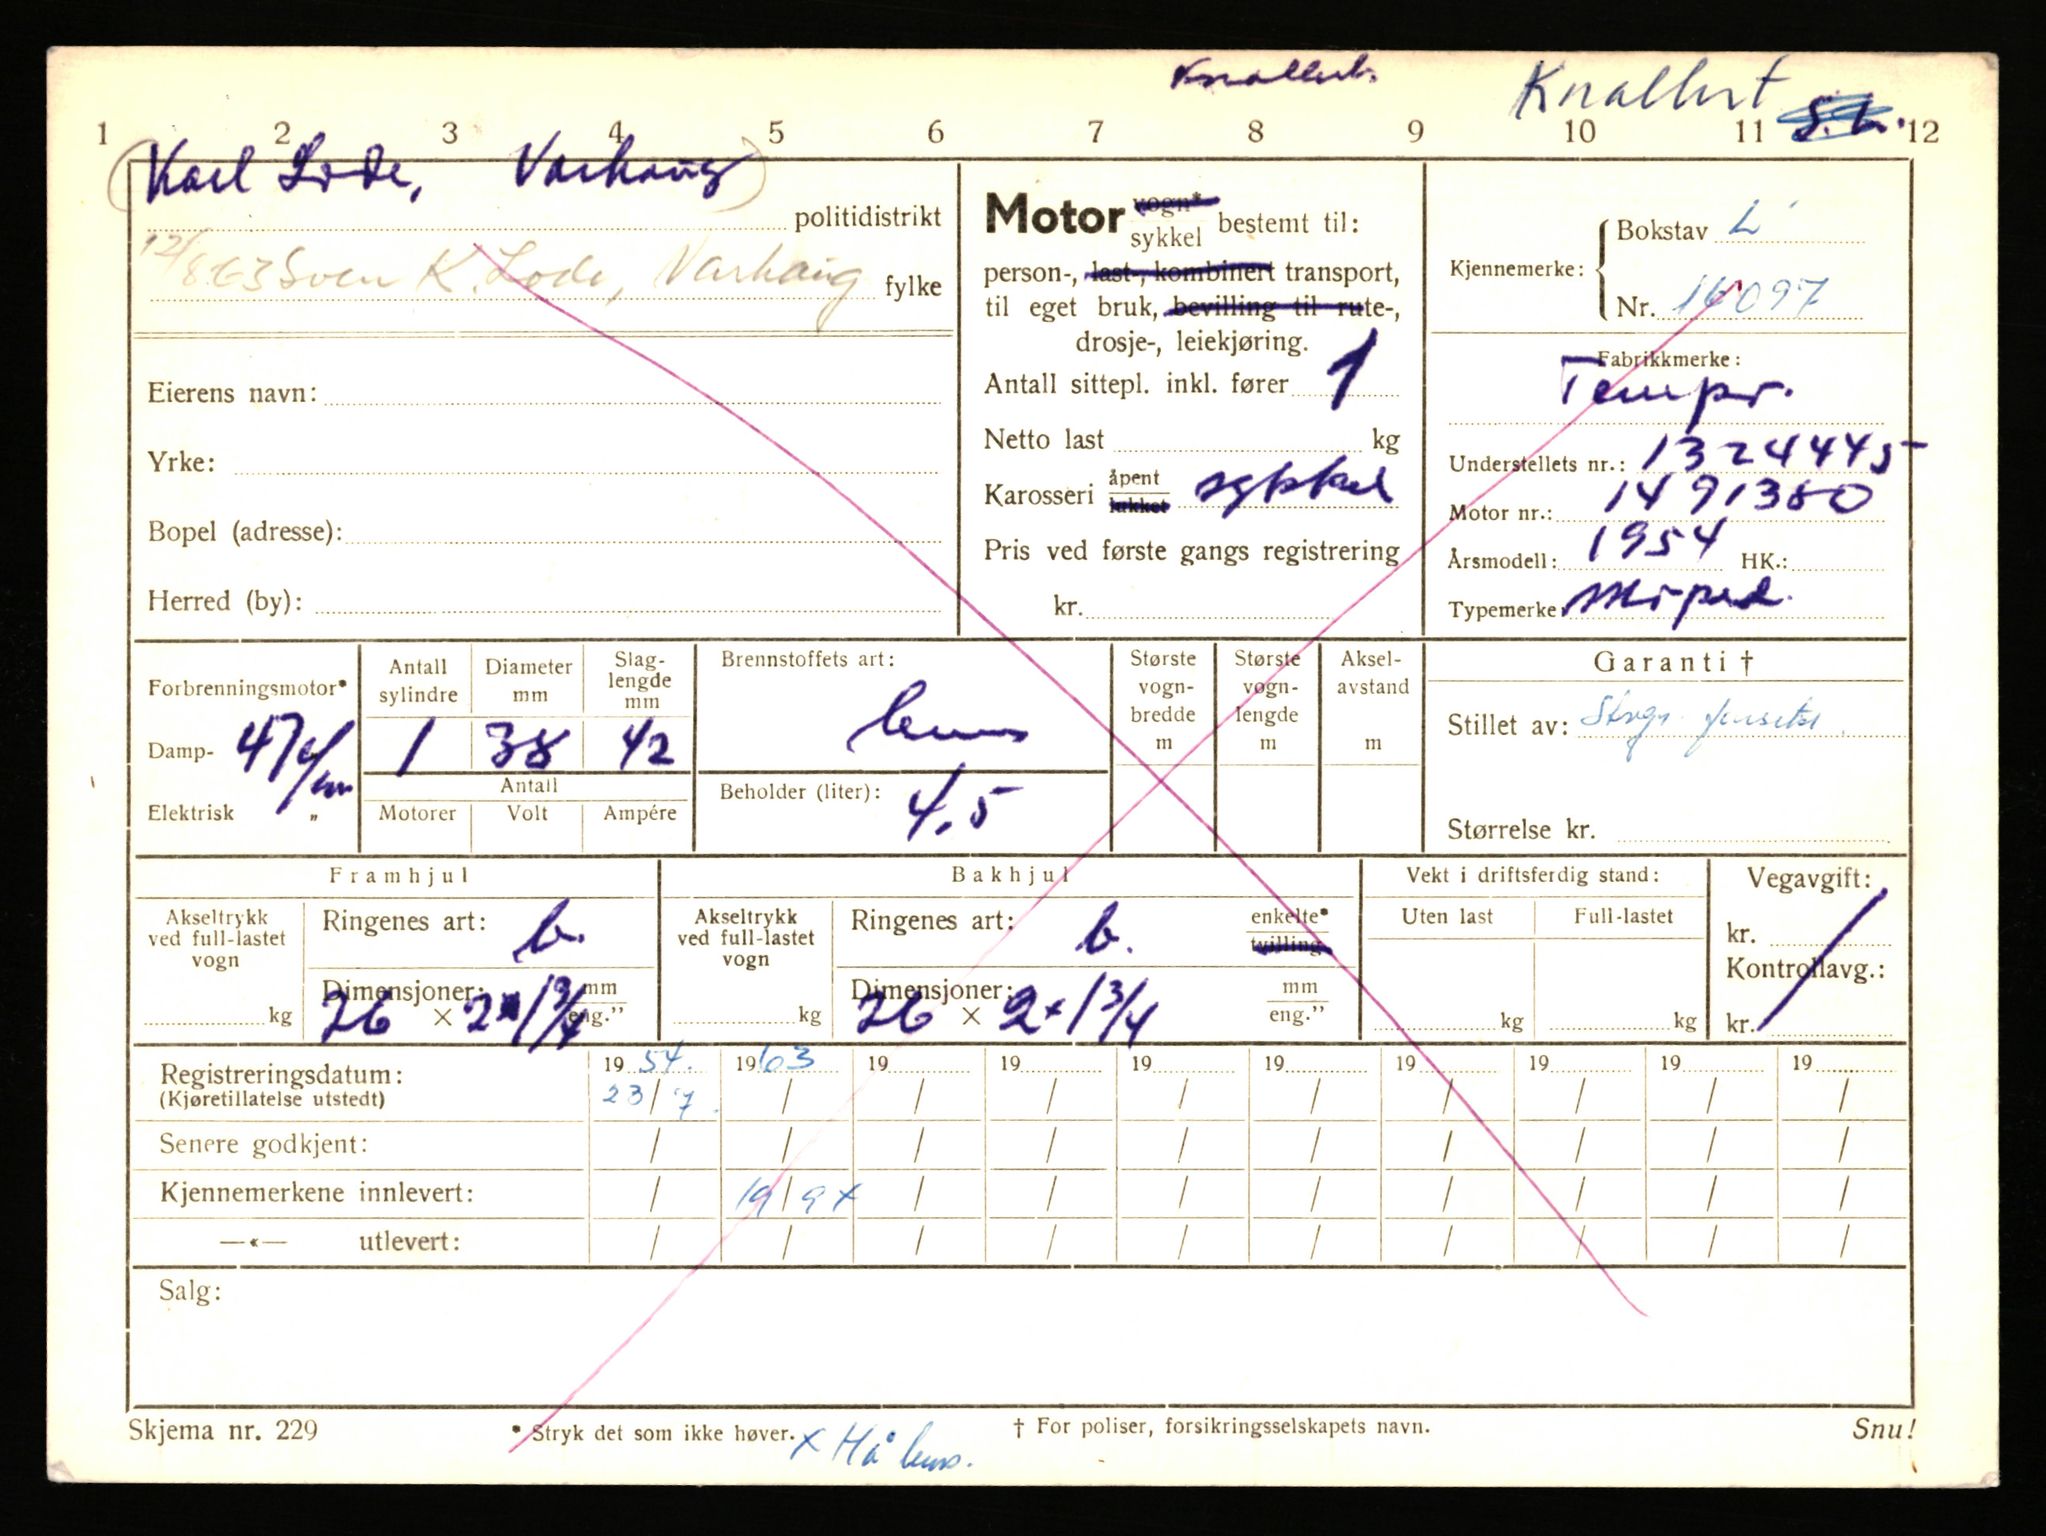 Knallert.
Knallert
S.L.
1 2 3 4 5 6 7 8 9 10 11 12
(Karl Lode, Varhaug)
politidistrikt
12/8 63 Sven K. Lode, Varhaug fylke
Eierens navn:
Yrke:
Bopel (adresse):
Herred (by):
Motor vogn* sykkel bestemt til:
person-, last-, kombinert transport,
til eget bruk, bevilling til rute-,
drosje-, leiekjøring.
Antall sittepl. inkl. fører 1
Netto last kg
Karosseri åpent lukket sykkel
Pris ved første gangs registrering
kr.
Kjennemerke: Bokstav L
Nr. 16097
Fabrikkmerke:
Tempo.
Understellets nr.: 13244445
Motor nr.: 1491380
Årsmodell: 1954 HK.:
Typemerke: Moped.
Forbrenningsmotor*
Damp- „
Elektrisk „
47 c/cm
Antall sylindre
1
Diameter mm
38
Slag-lengde mm
42
Antall
Motorer Volt Ampére
Brennstoffets art:
bens
Beholder (liter): 4.5
Største vogn-bredde m
Største vogn-lengde m
Aksel-avstand m
Garanti †
Stillet av:
Størrelse kr.
Framhjul
Akseltrykk ved full-lastet vogn
kg
Ringenes art: b.
Dimensjoner: mm eng."
26 × 2 × 1 3/4
Bakhjul
Akseltrykk ved full-lastet vogn
kg
Ringenes art: b. enkelte* tvilling
Dimensjoner: mm eng."
26 × 2 × 1 3/4
Vekt i driftsferdig stand:
Uten last Full-lastet
kg kg
Vegavgift:
kr.
Kontrollavg.:
kr.
Registreringsdatum: 19 54. 19 63 19 19 19 19 19 19 19 19
(Kjøretillatelse utstedt) 23/7. / / / / / / / / /
Senere godkjent: / / / / / / / / / /
Kjennemerkene innlevert: / 19/9 x / / / / / / / /
—«— utlevert: / / / / / / / / / /
Salg:
Skjema nr. 229
* Stryk det som ikke høver.
x Hå lens.
† For poliser, forsikringsselskapets navn.
Snu!